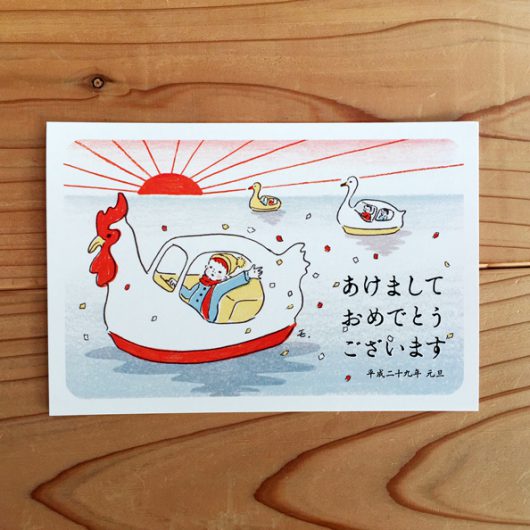 あけまして
おめでとう
ございます
平成二十九年 元旦